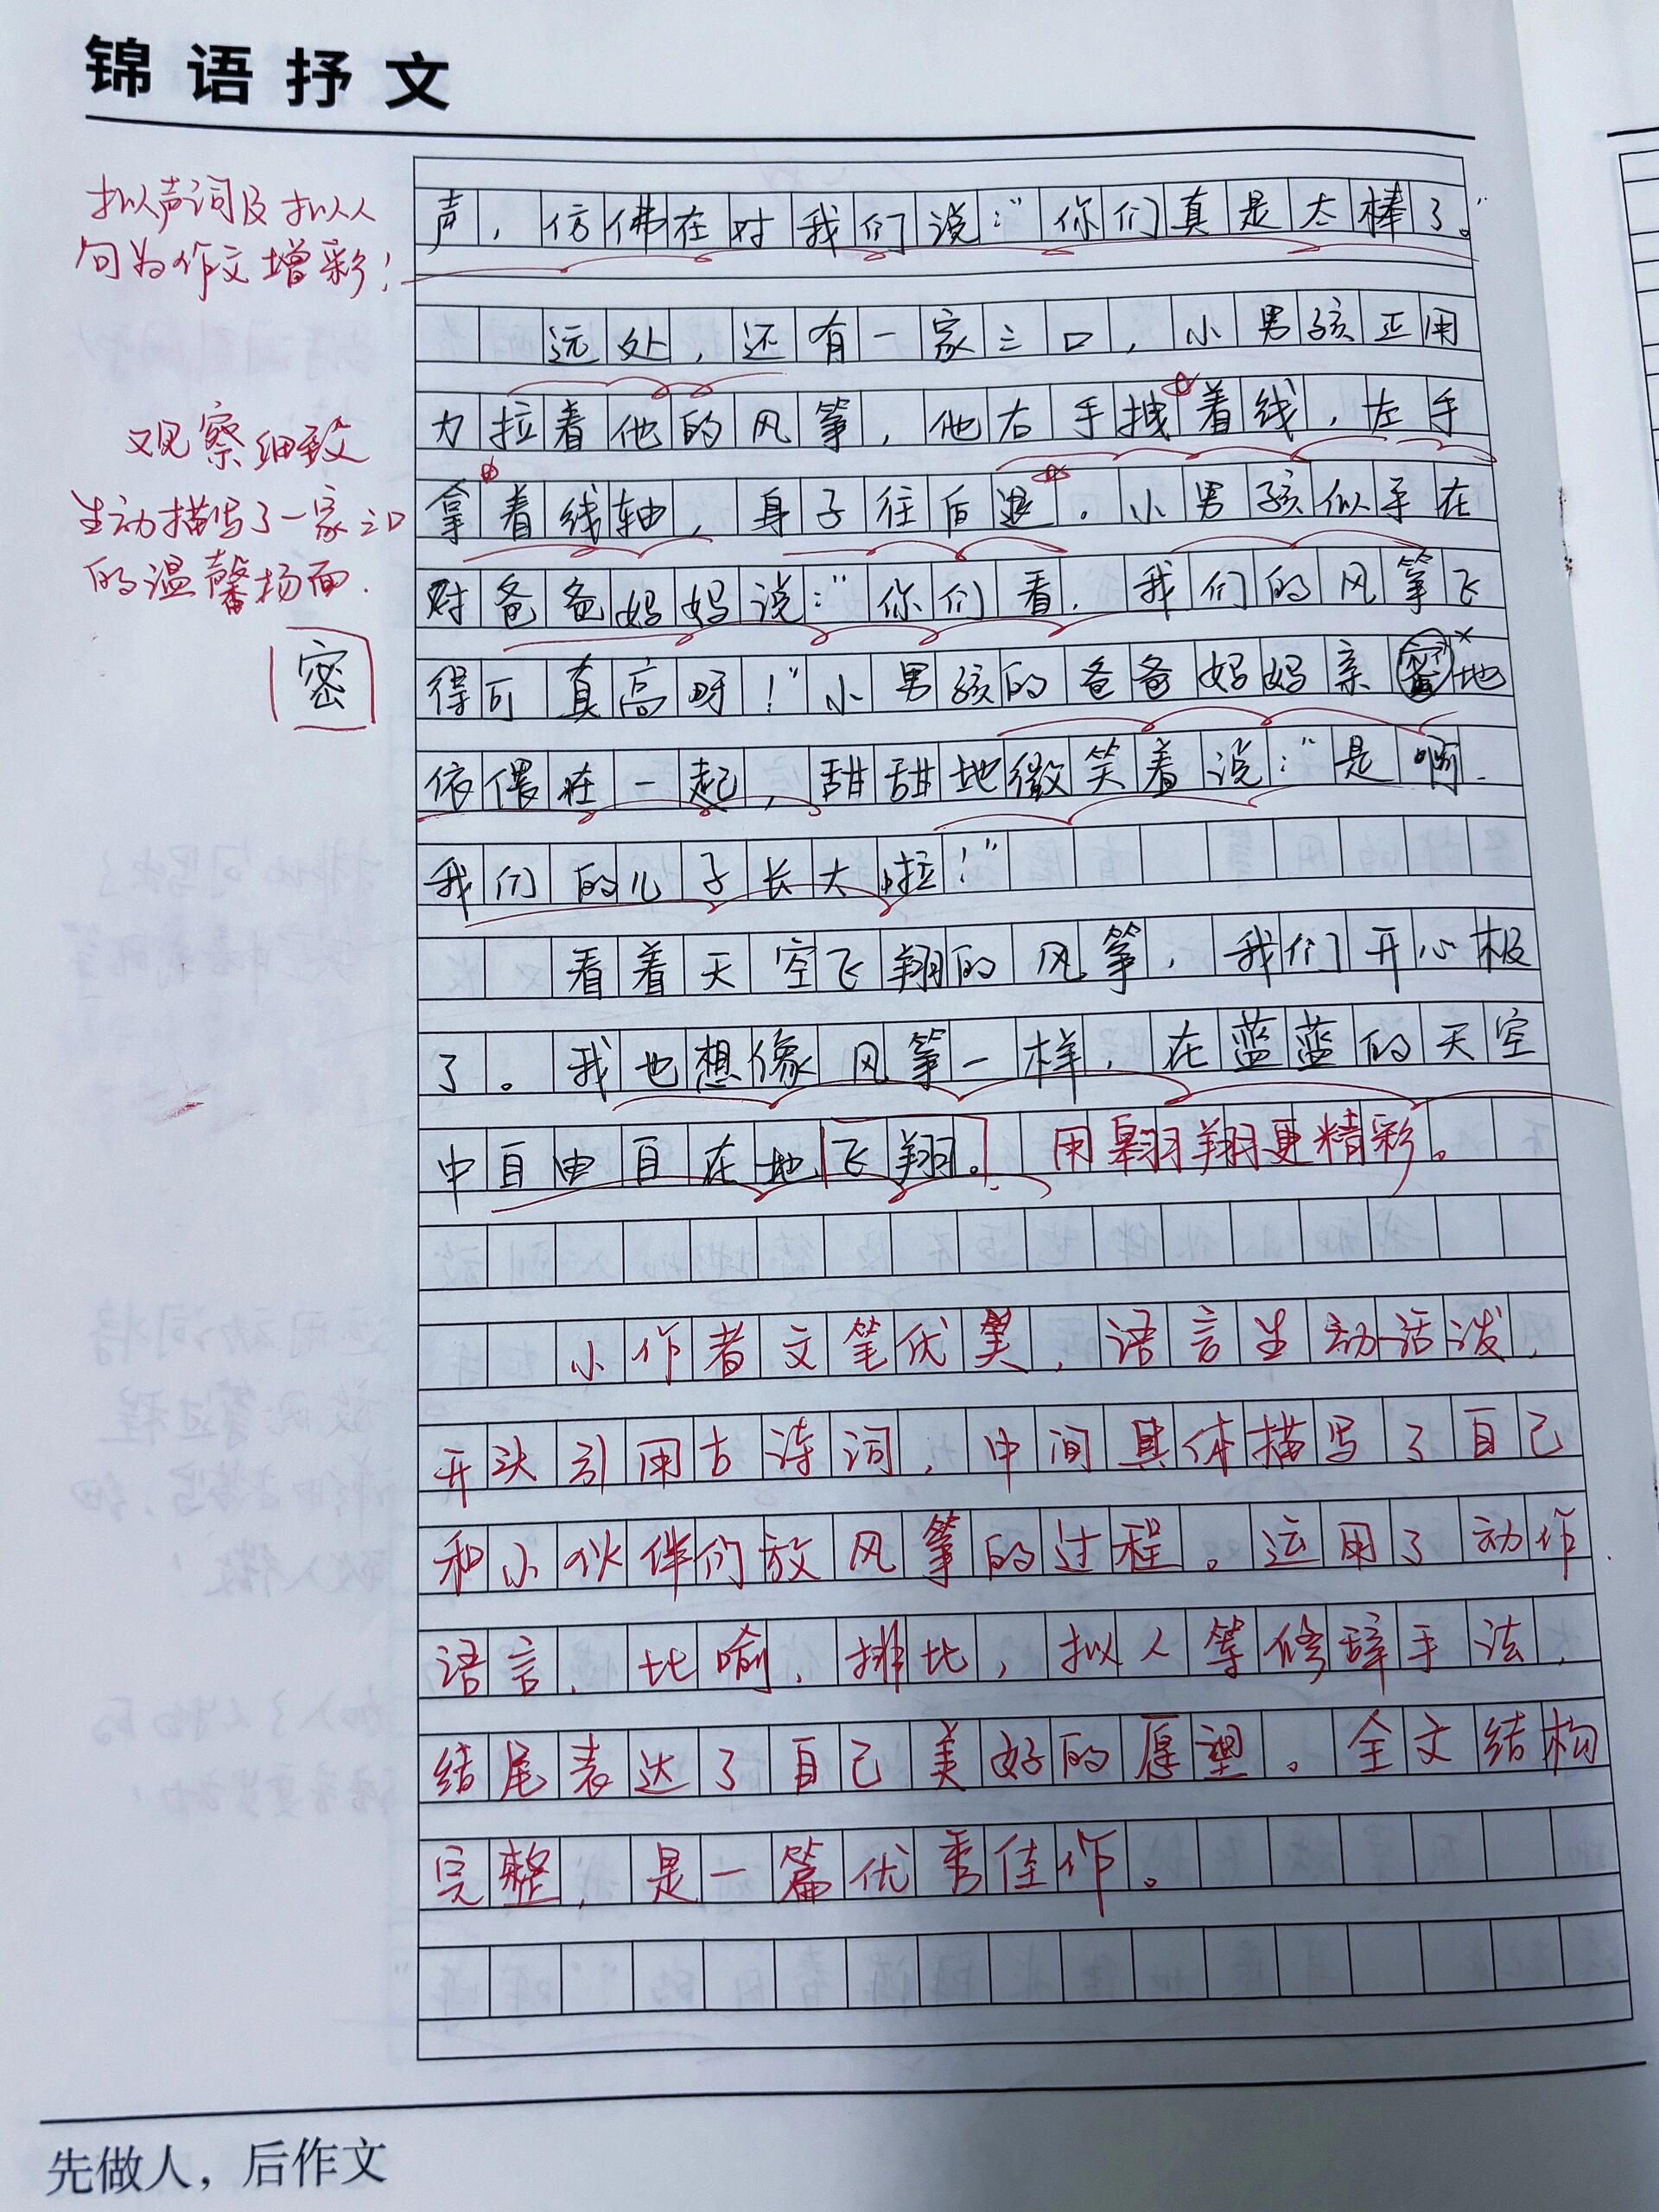 锦语抒文
拟声词及拟人
句为作文增彩！
声，仿佛在对我们说：“你们真是太棒了。”
远处，还有一家三口，小男孩正用
力拉着他的风筝，他右手拽着线，左手
观察细致
生动描写了一家三口
的温馨场面.
拿着线轴，身子往后退。小男孩似乎在
对爸爸妈妈说：“你们看，我们的风筝飞
得可真高呀！”小男孩的爸爸妈妈亲密地
密
依偎在一起，甜甜地微笑着说：“是啊，
我们的儿子长大啦！”
看着天空飞翔的风筝，我们开心极
了。我也想像风筝一样，在蓝蓝的天空
中自由自在地飞翔。用翱翔更精彩。
小作者文笔优美，语言生动活泼，
开头引用古诗词，中间具体描写了自己
和小伙伴们放风筝的过程。运用了动作
语言、比喻、排比，拟人等修辞手法，
结尾表达了自己美好的愿望。全文结构
完整，是一篇优秀佳作。
先做人，后作文